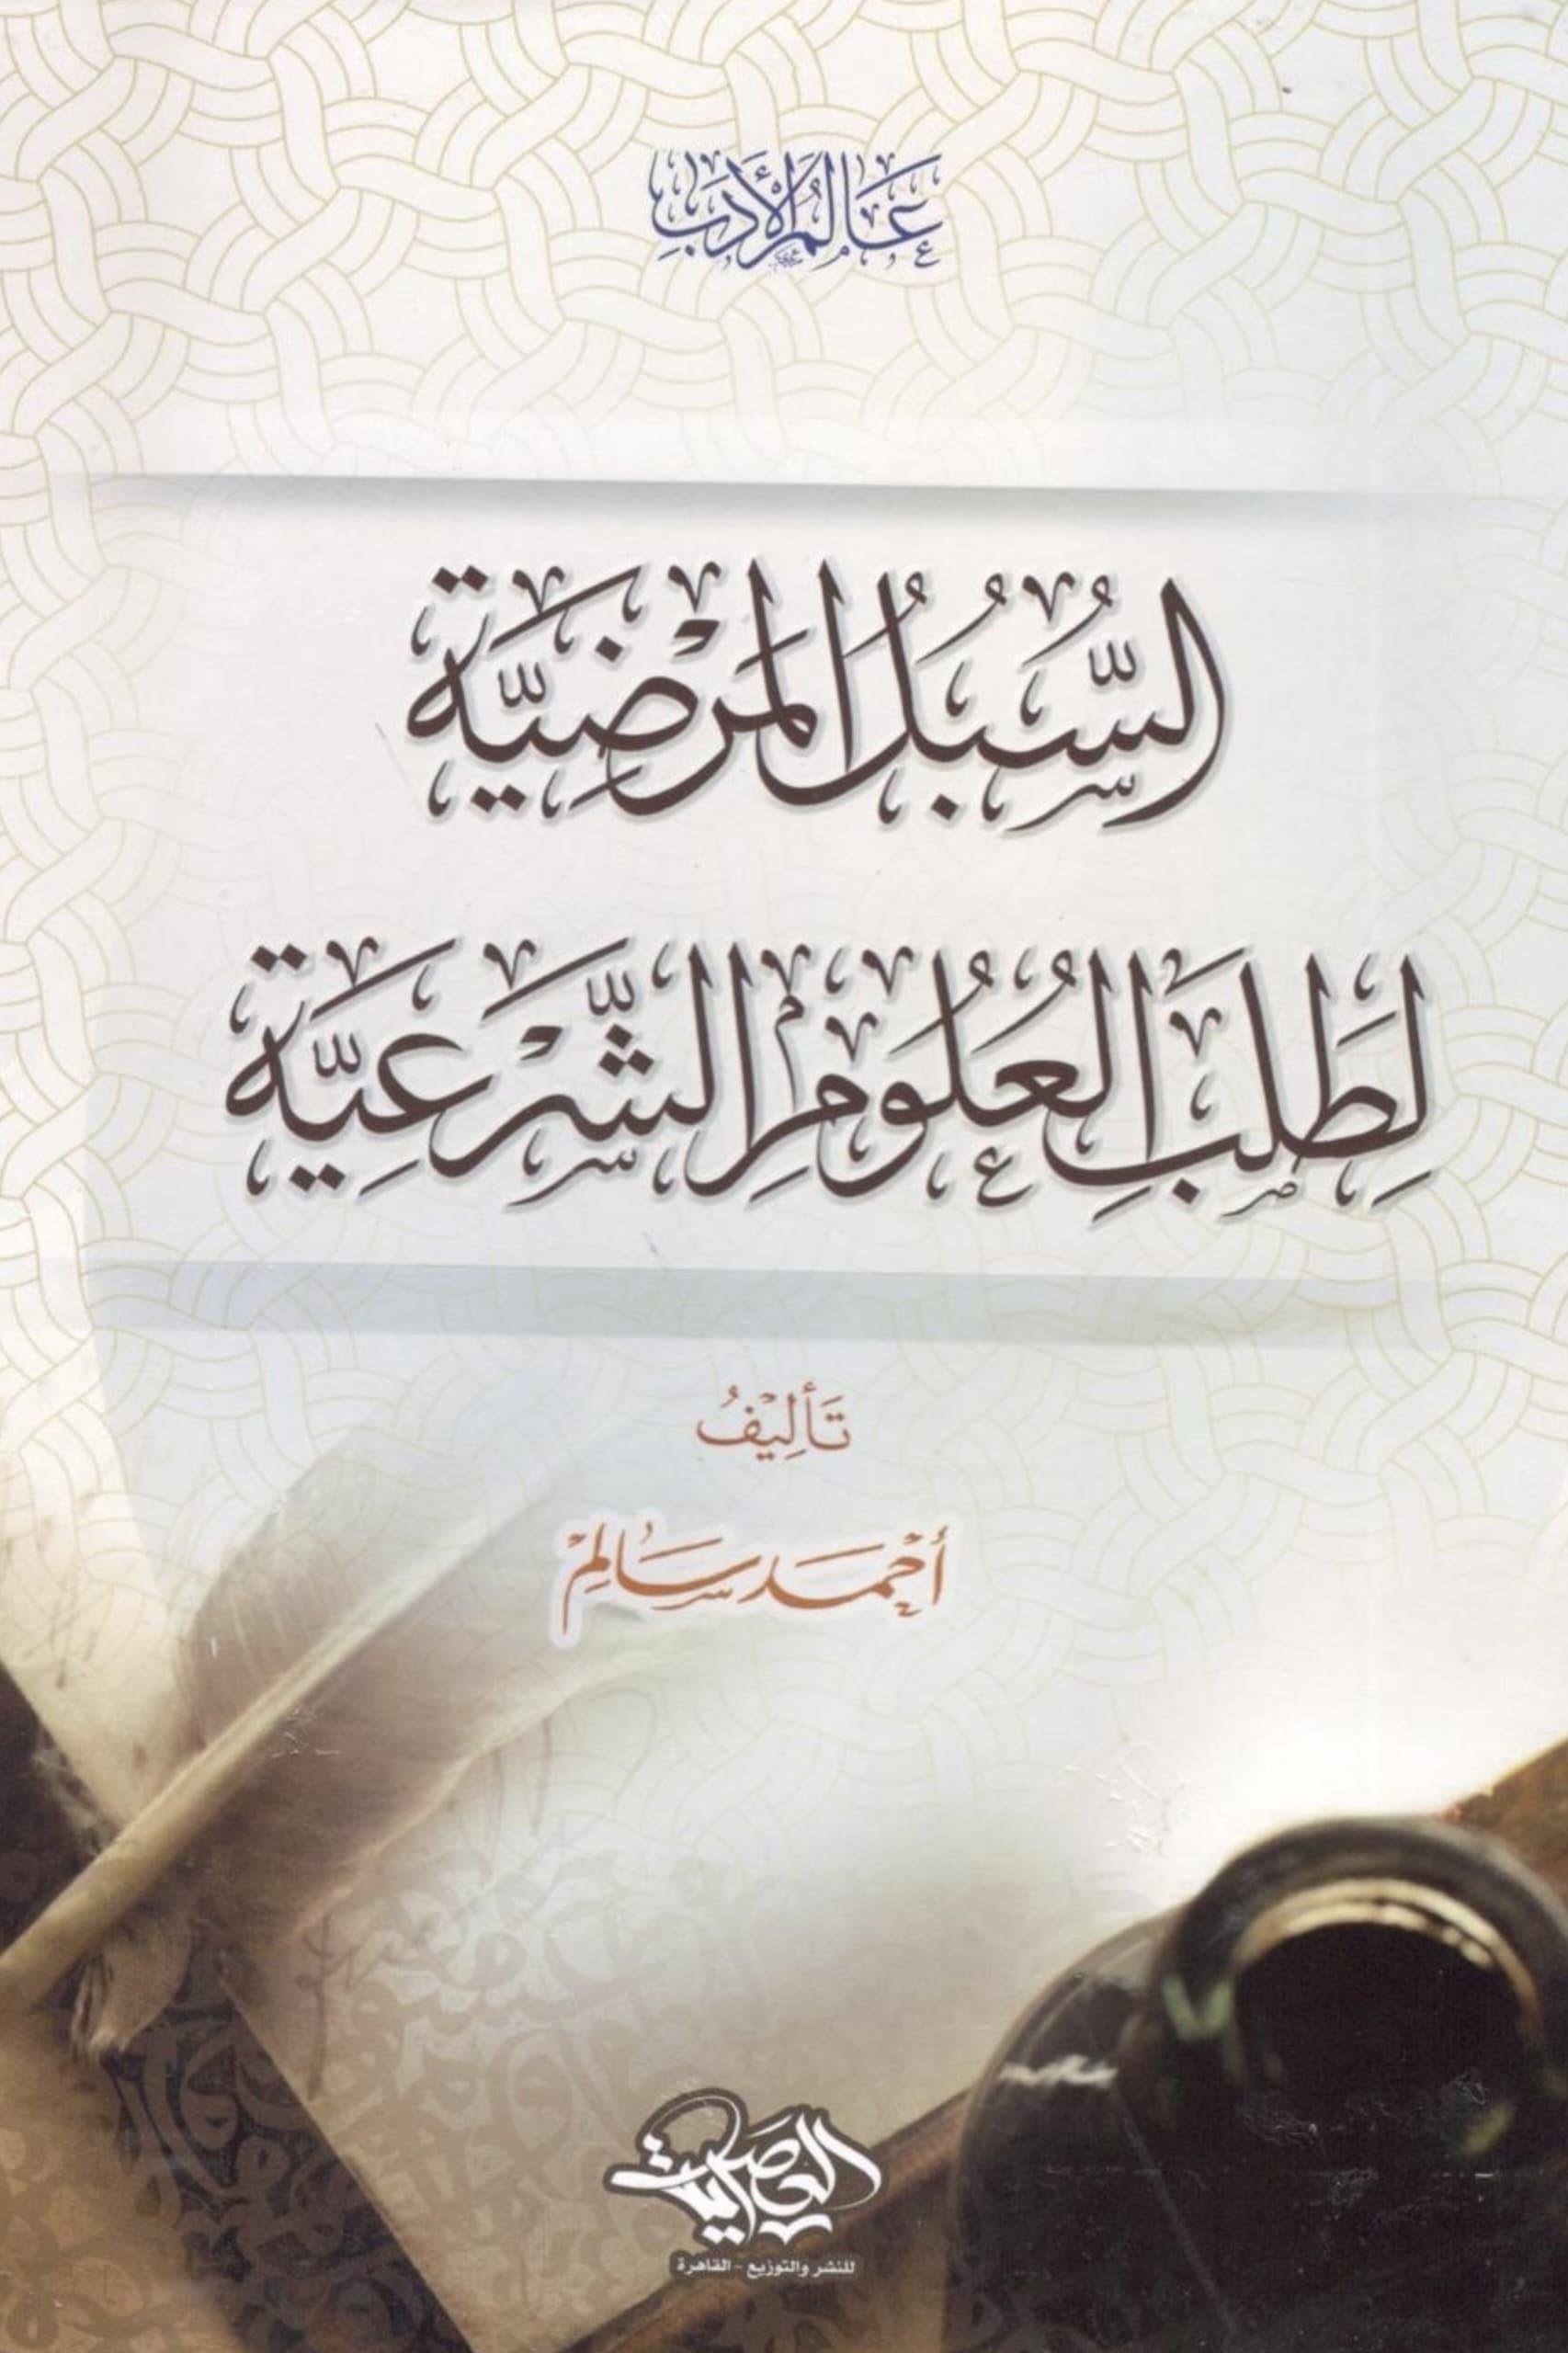 عَالَمُ الأَدَبِ
السُّبُلُ المَرْضِيَّة
لِطَلَبِ العُلُومِ الشَّرْعِيَّة
تَأْلِيْفُ
أَحْمَد سَالِمْ
للنشر والتوزيع - القاهرة